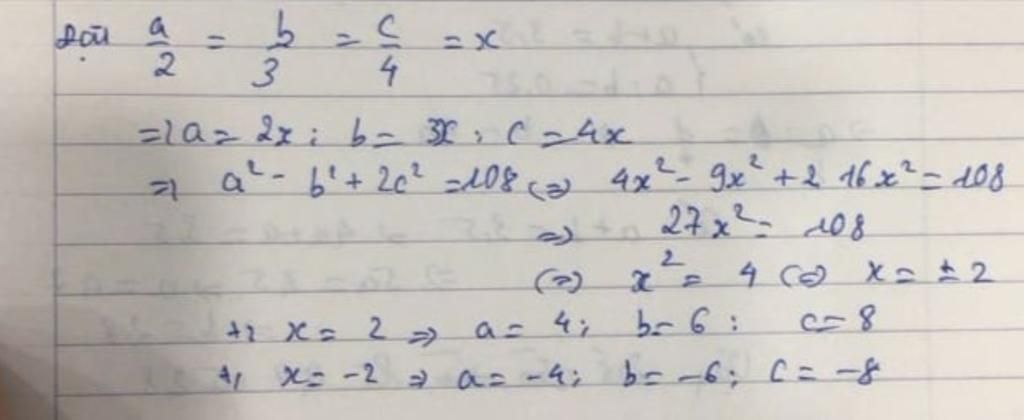 Đặt a/2 = b/3 = c/4 = x
=> a = 2x ; b = 3x ; c = 4x
=> a² - b² + 2c² = 108 <=> 4x² - 9x² + 2 16x² = 108
=> 27x² = 108
<=> x² = 4 <=> x = ± 2
+) x = 2 => a = 4 ; b = 6 ; c = 8
+) x = -2 => a = -4 ; b = -6 ; c = -8